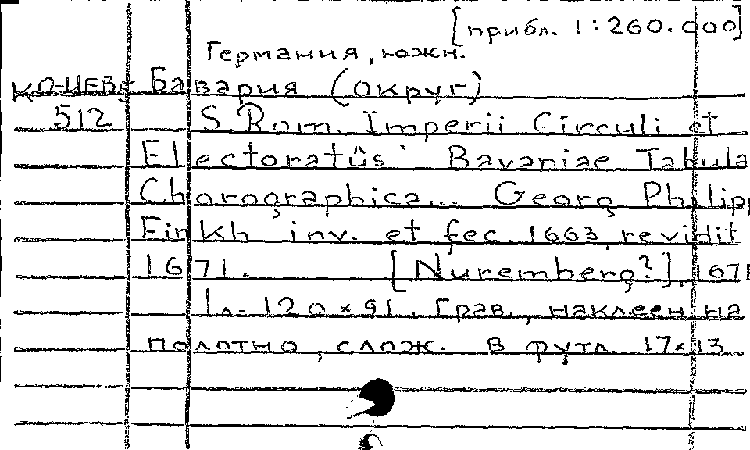 [прибл. 1:260.000]
Германия, южн.
КО-ЦЕВ Бавария (округ)
512 S Rom. Imperii Circuli et
Electoratûs Bavariae Tabula
Chorographica... Georg Philipp
Finkh inv. et fec. 1663, revidit
1671. [Nuremberg?], 1671
1 л. 120 × 91. Грав., наклеен на
полотно, слож. в футл. 17×13